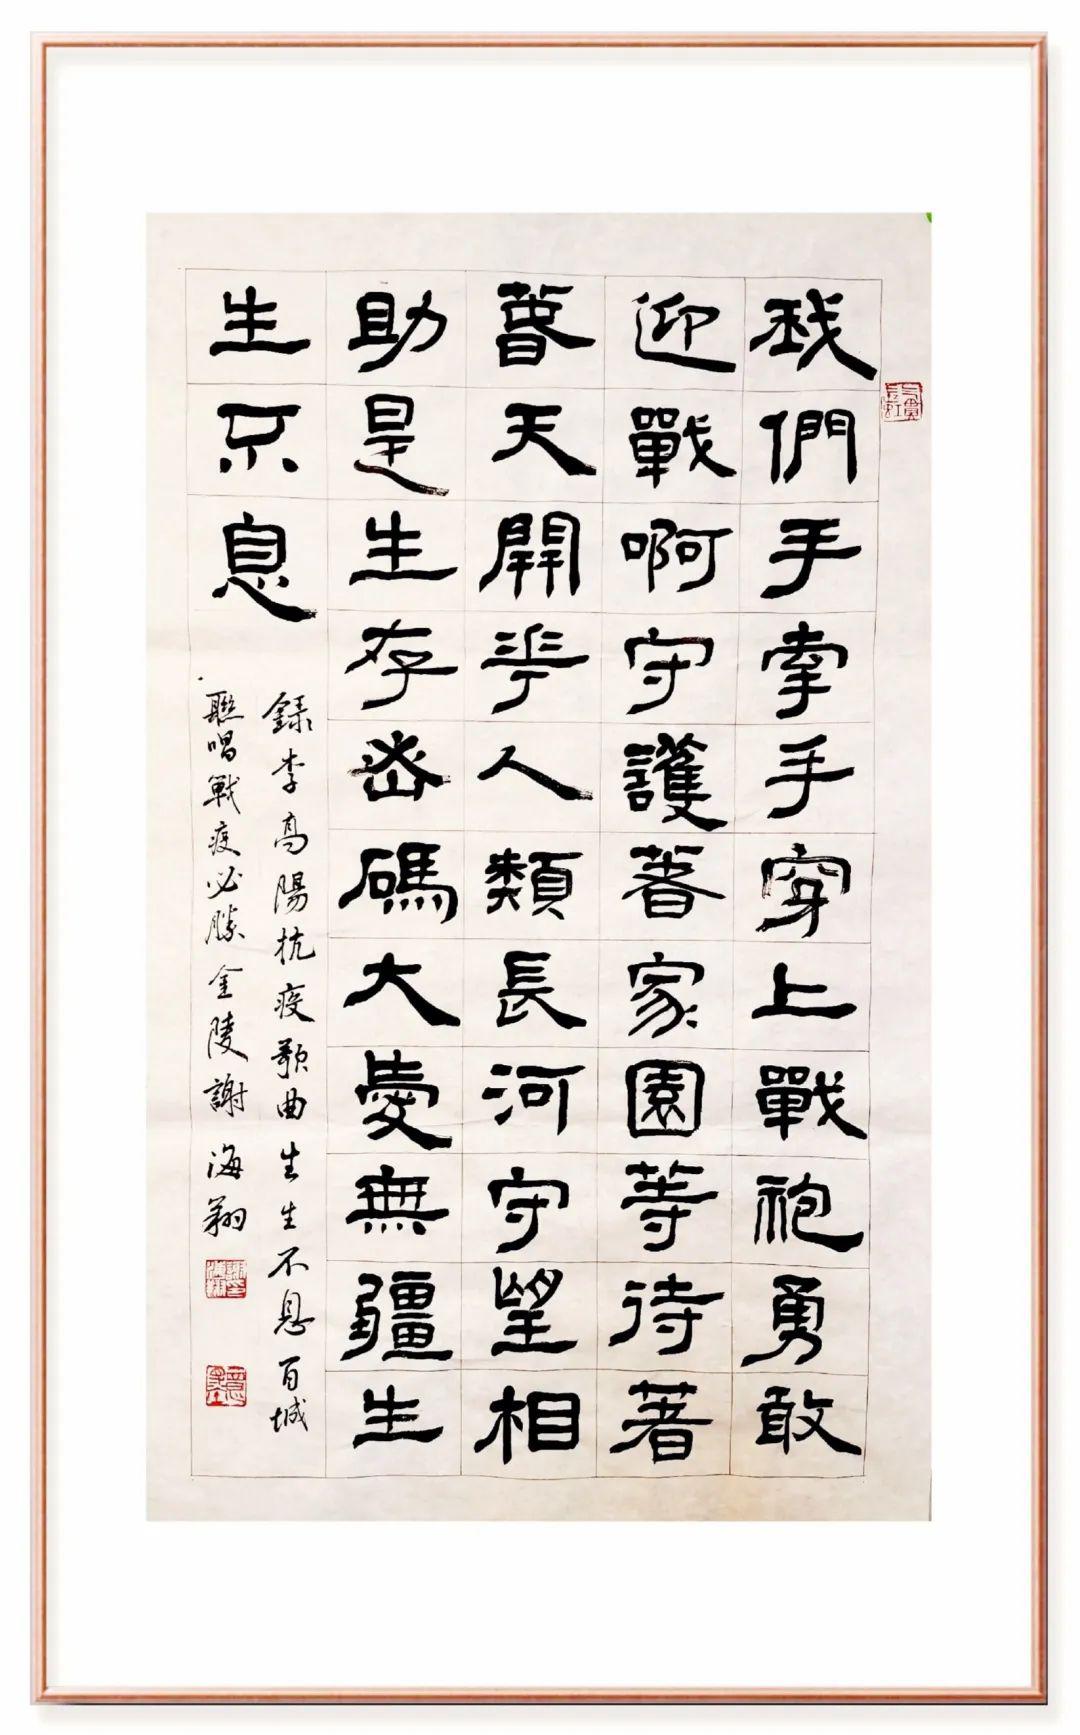 我們手牽手穿上戰袍勇敢
迎戰啊守護著家園等待著
春天開花人類長河守望相
助是生存密碼大愛無疆生
生不息
錄李高陽抗疫歌曲生生不息百城
聯唱戰疫必勝金陵謝海翔